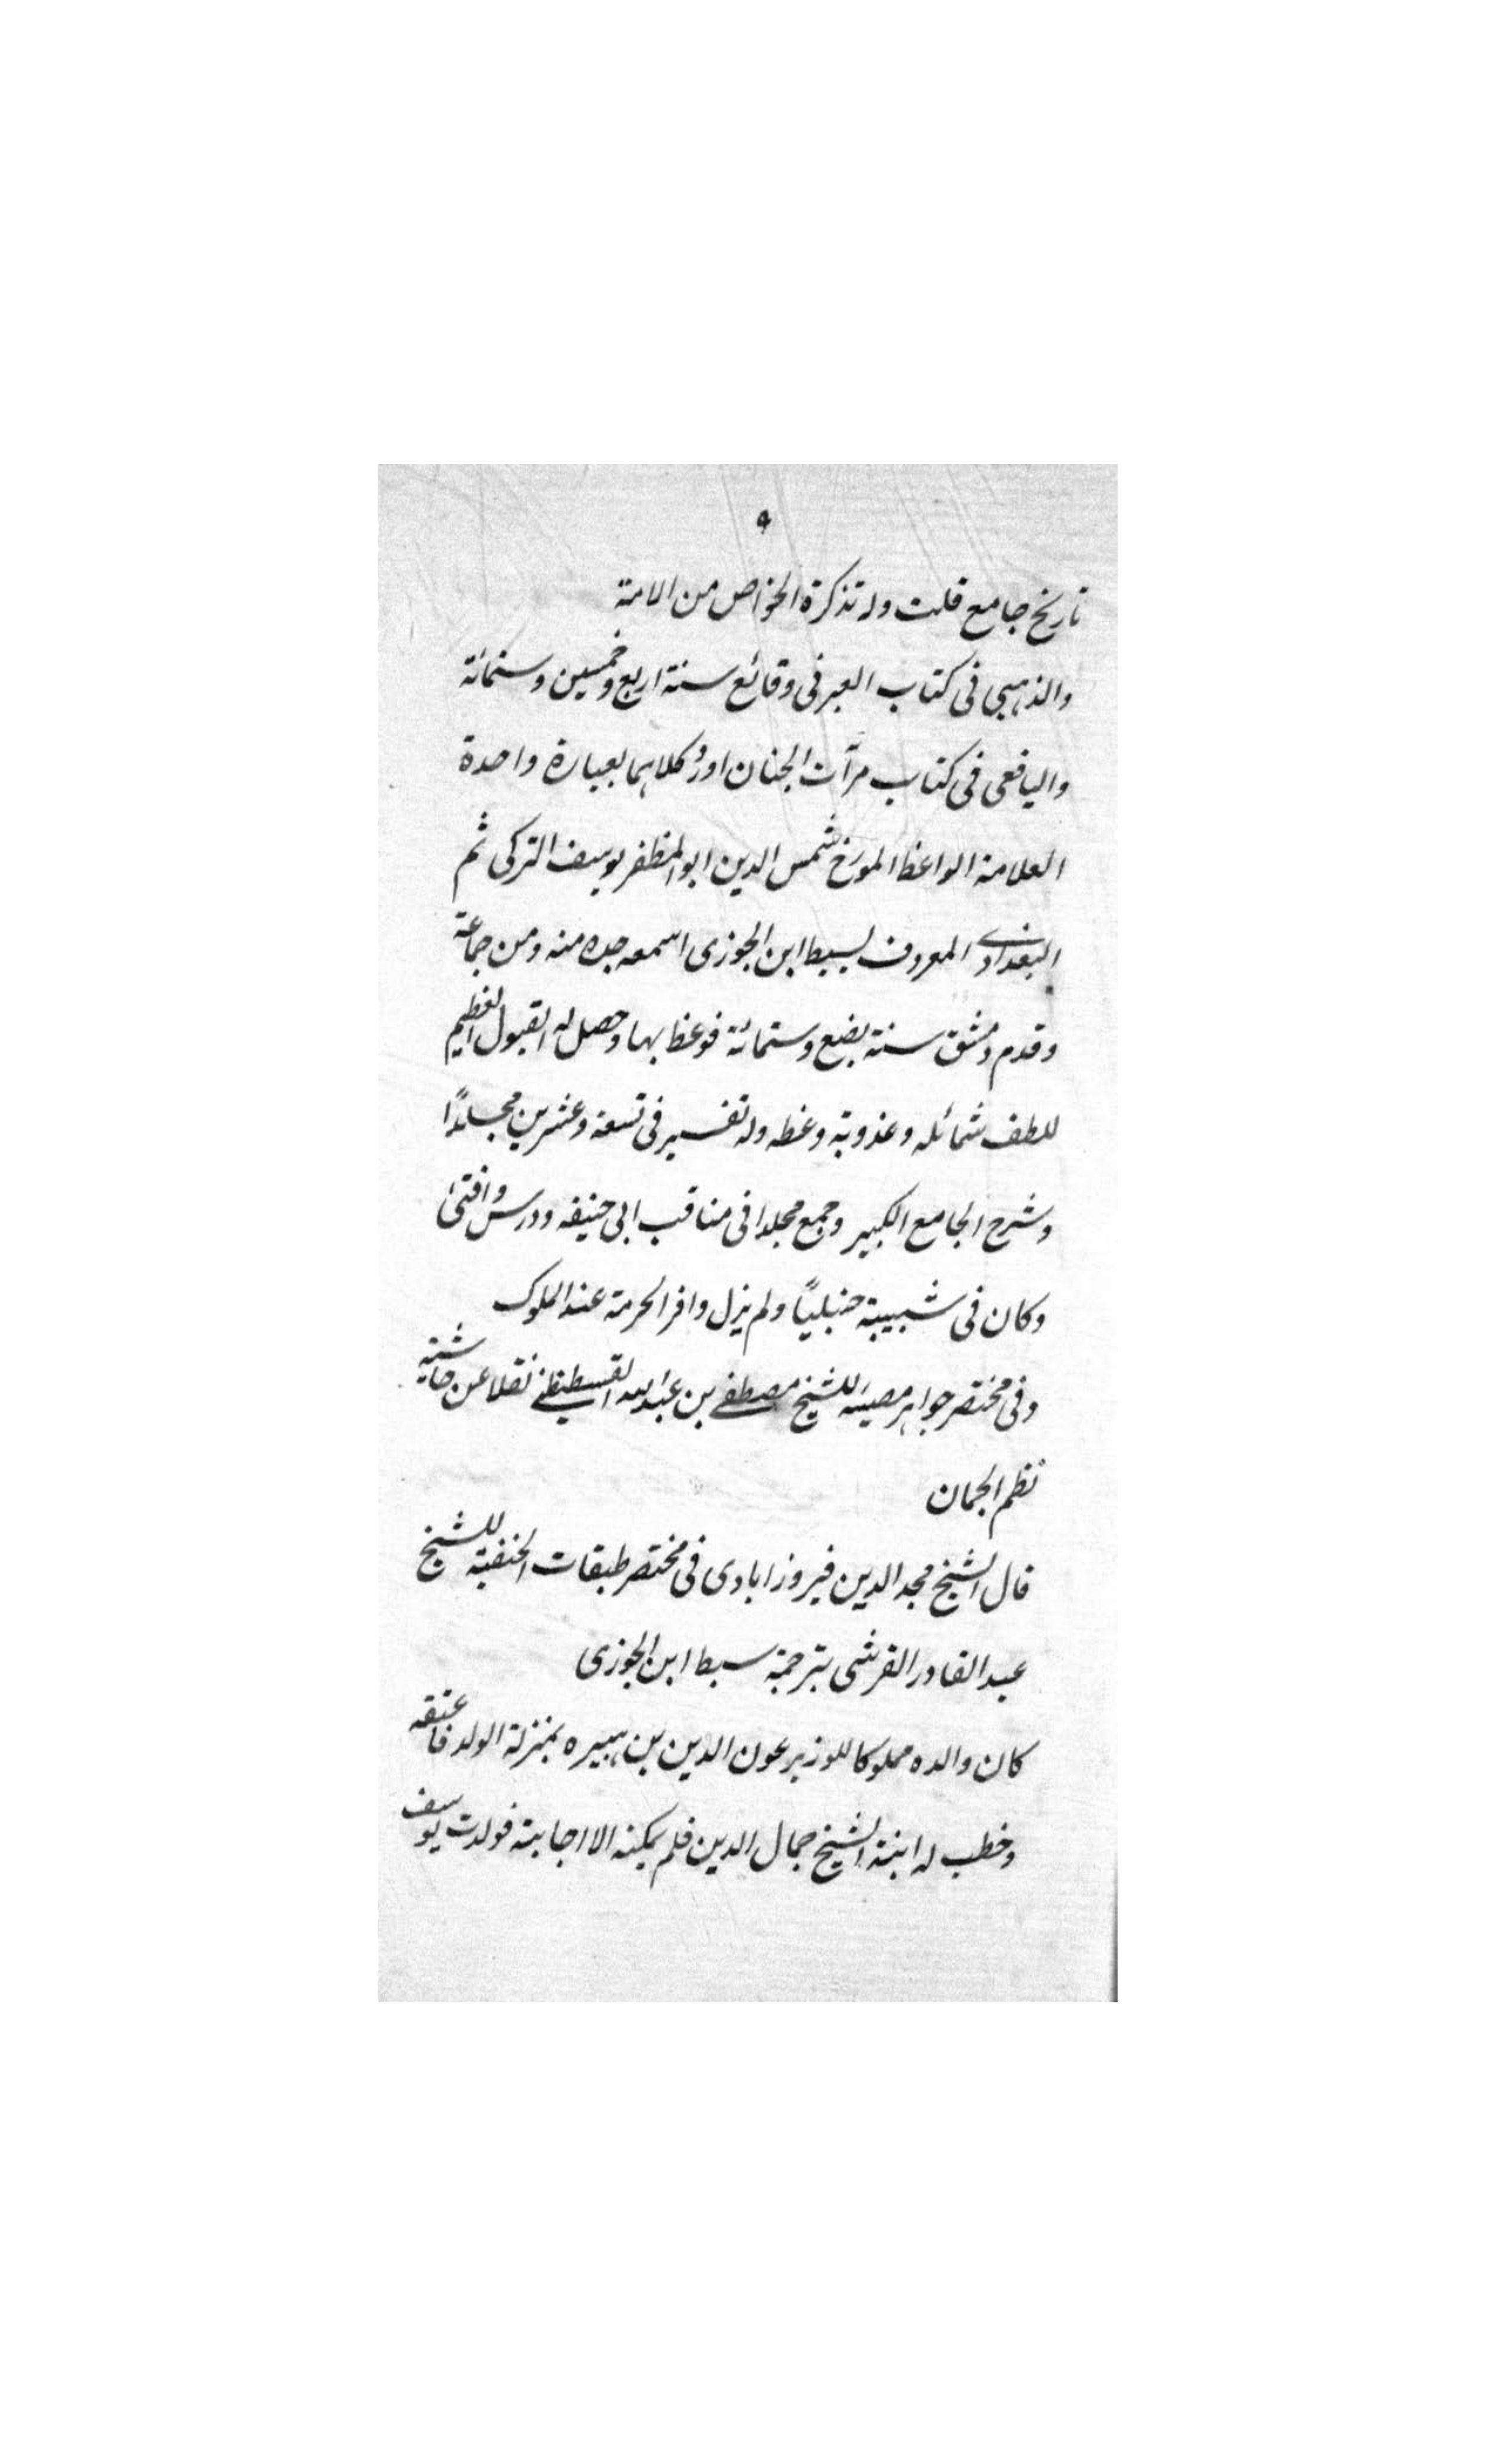 ٩
تاریخ جامع قلت وله تذكرة الخواص من الامة
والذهبی فی كتاب العبر فی وقائع سنة اربع وخمسین وستمائة
والیافعی فی كتاب مرآت الجنان اورد كلاهما بعبارة واحدة
العلامة الواعظ المورخ شمس الدین ابو المظفر یوسف التركی ثم
البغدادی المعروف بسبط ابن الجوزی اسمعه جده منه ومن جماعة
وقدم دمشق سنة بضع وستمائة فوعظ بها وحصل له القبول العظیم
للطف شمائله وعذوبة وعظه وله تفسیر فی تسعة وعشرین مجلدًا
وشرح الجامع الكبیر وجمع مجلدا فی مناقب ابی حنیفه ودرس وافتیٰ
وكان فی شبیبة حنبلیًا ولم یزل وافر الحرمة عند الملوک
وفی مختصر جواهر مضیئه للشیخ مصطفے بن عبد الله القسطنطینے نقلا عن حاشیة
نظم الجمان
قال الشیخ مجد الدین فیروزابادی فی مختصر طبقات الحنفیة للشیخ
عبد القادر القرشی بترجمة سبط ابن الجوزی
كان والده مملوكا للوزیر عون الدین بن هبیره بمنزلة الولد فاعتقه
وخطب له ابنة الشیخ جمال الدین فلم یمكنه الا اجابته فولدت یوسف